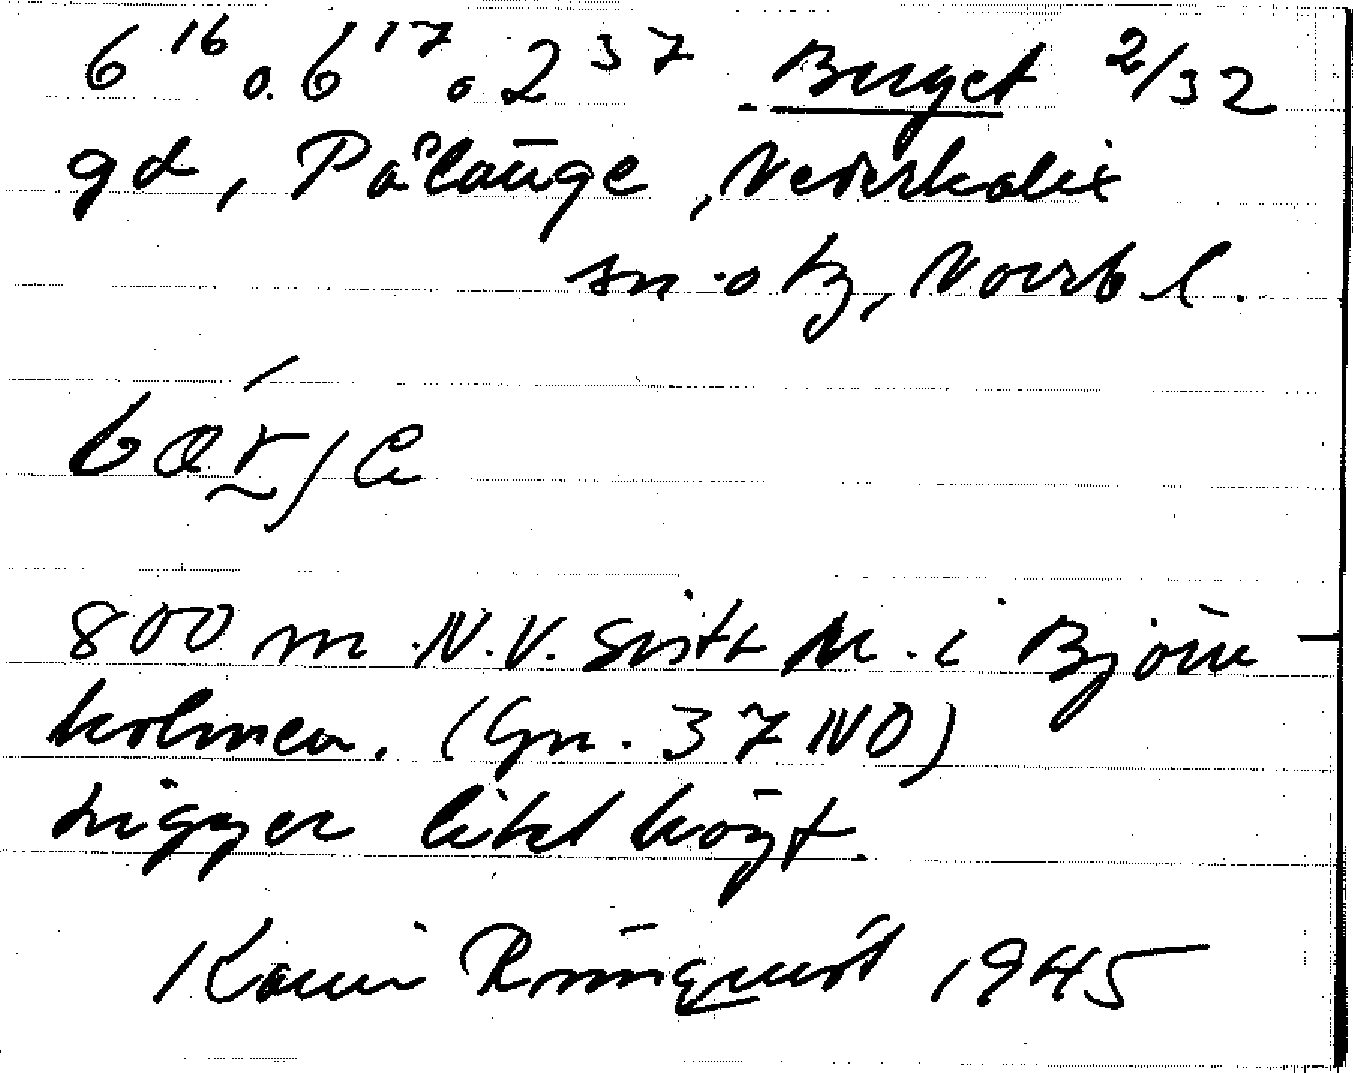 6¹⁶ o. 6¹⁷ o 2³⁷ Berget 2/32
gd, Pålänge, Nederkalix
sn o tg, Norrb l.
800 m N.V. Sista M. i Björn-
holmen. (Gn. 37 NO)
Ligger litet högt.
Karin Rönnquist 1945